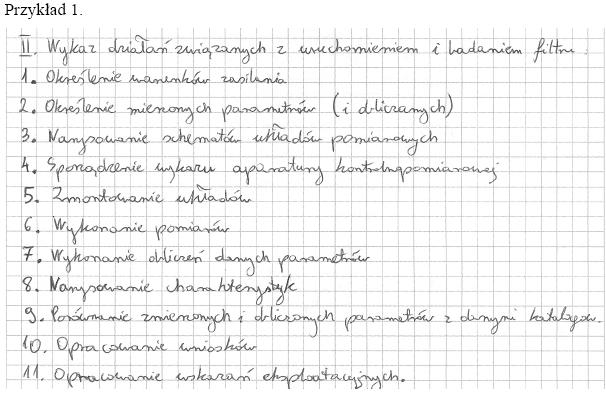 Przykład 1.
II. Wykaz działań związanych z uruchomieniem i badaniem filtru.
1. Określenie warunków zasilania
2. Określenie mierzonych parametrów (i obliczanych)
3. Narysowanie schematów układów pomiarowych
4. Sporządzenie wykazu aparatury kontrolnopomiarowej
5. Zmontowanie układów
6. Wykonanie pomiarów
7. Wykonanie obliczeń danych parametrów
8. Narysowanie charakterystyk
9. Porównanie zmierzonych i obliczonych parametrów z danymi katalogow.
10. Opracowanie wniosków
11. Opracowanie wskazań eksploatacyjnych.